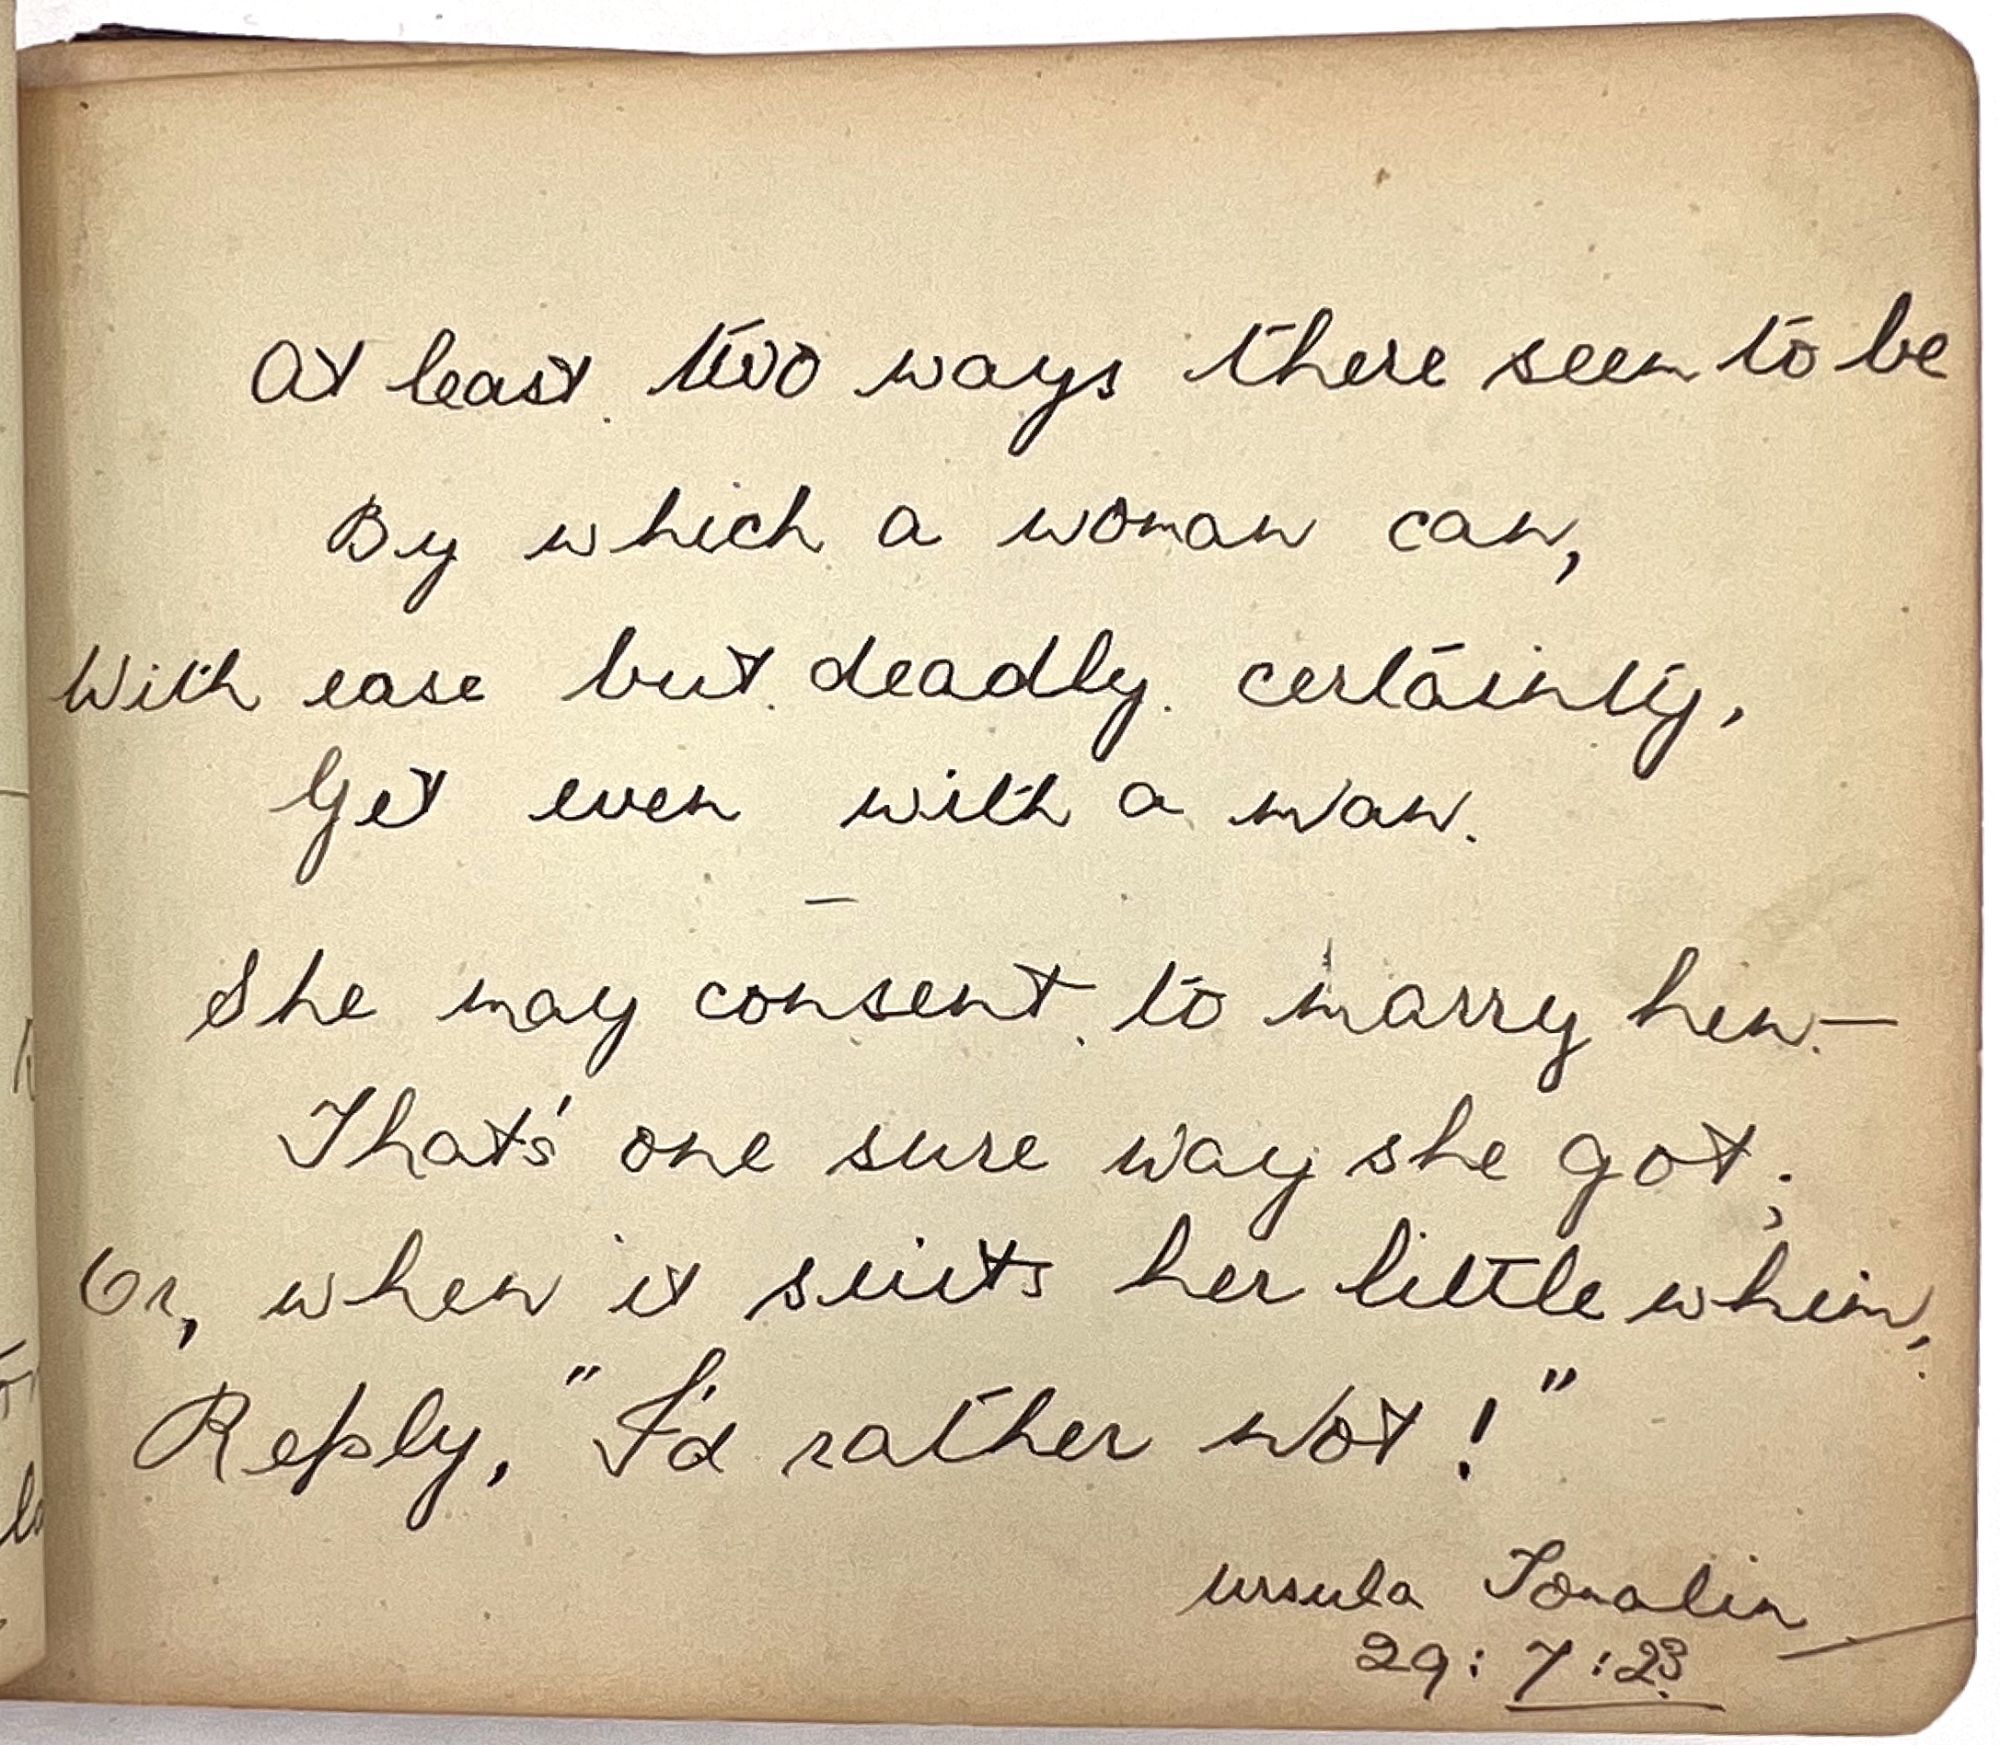 At least two ways there seem to be
By which a woman can,
With ease but deadly certainty,
Get even with a man.
—
She may consent to marry him —
That's one sure way she got;
Or, when it suits her little whim,
Reply, "I'd rather not!"
Ursula Tomalin
29: 7: 23